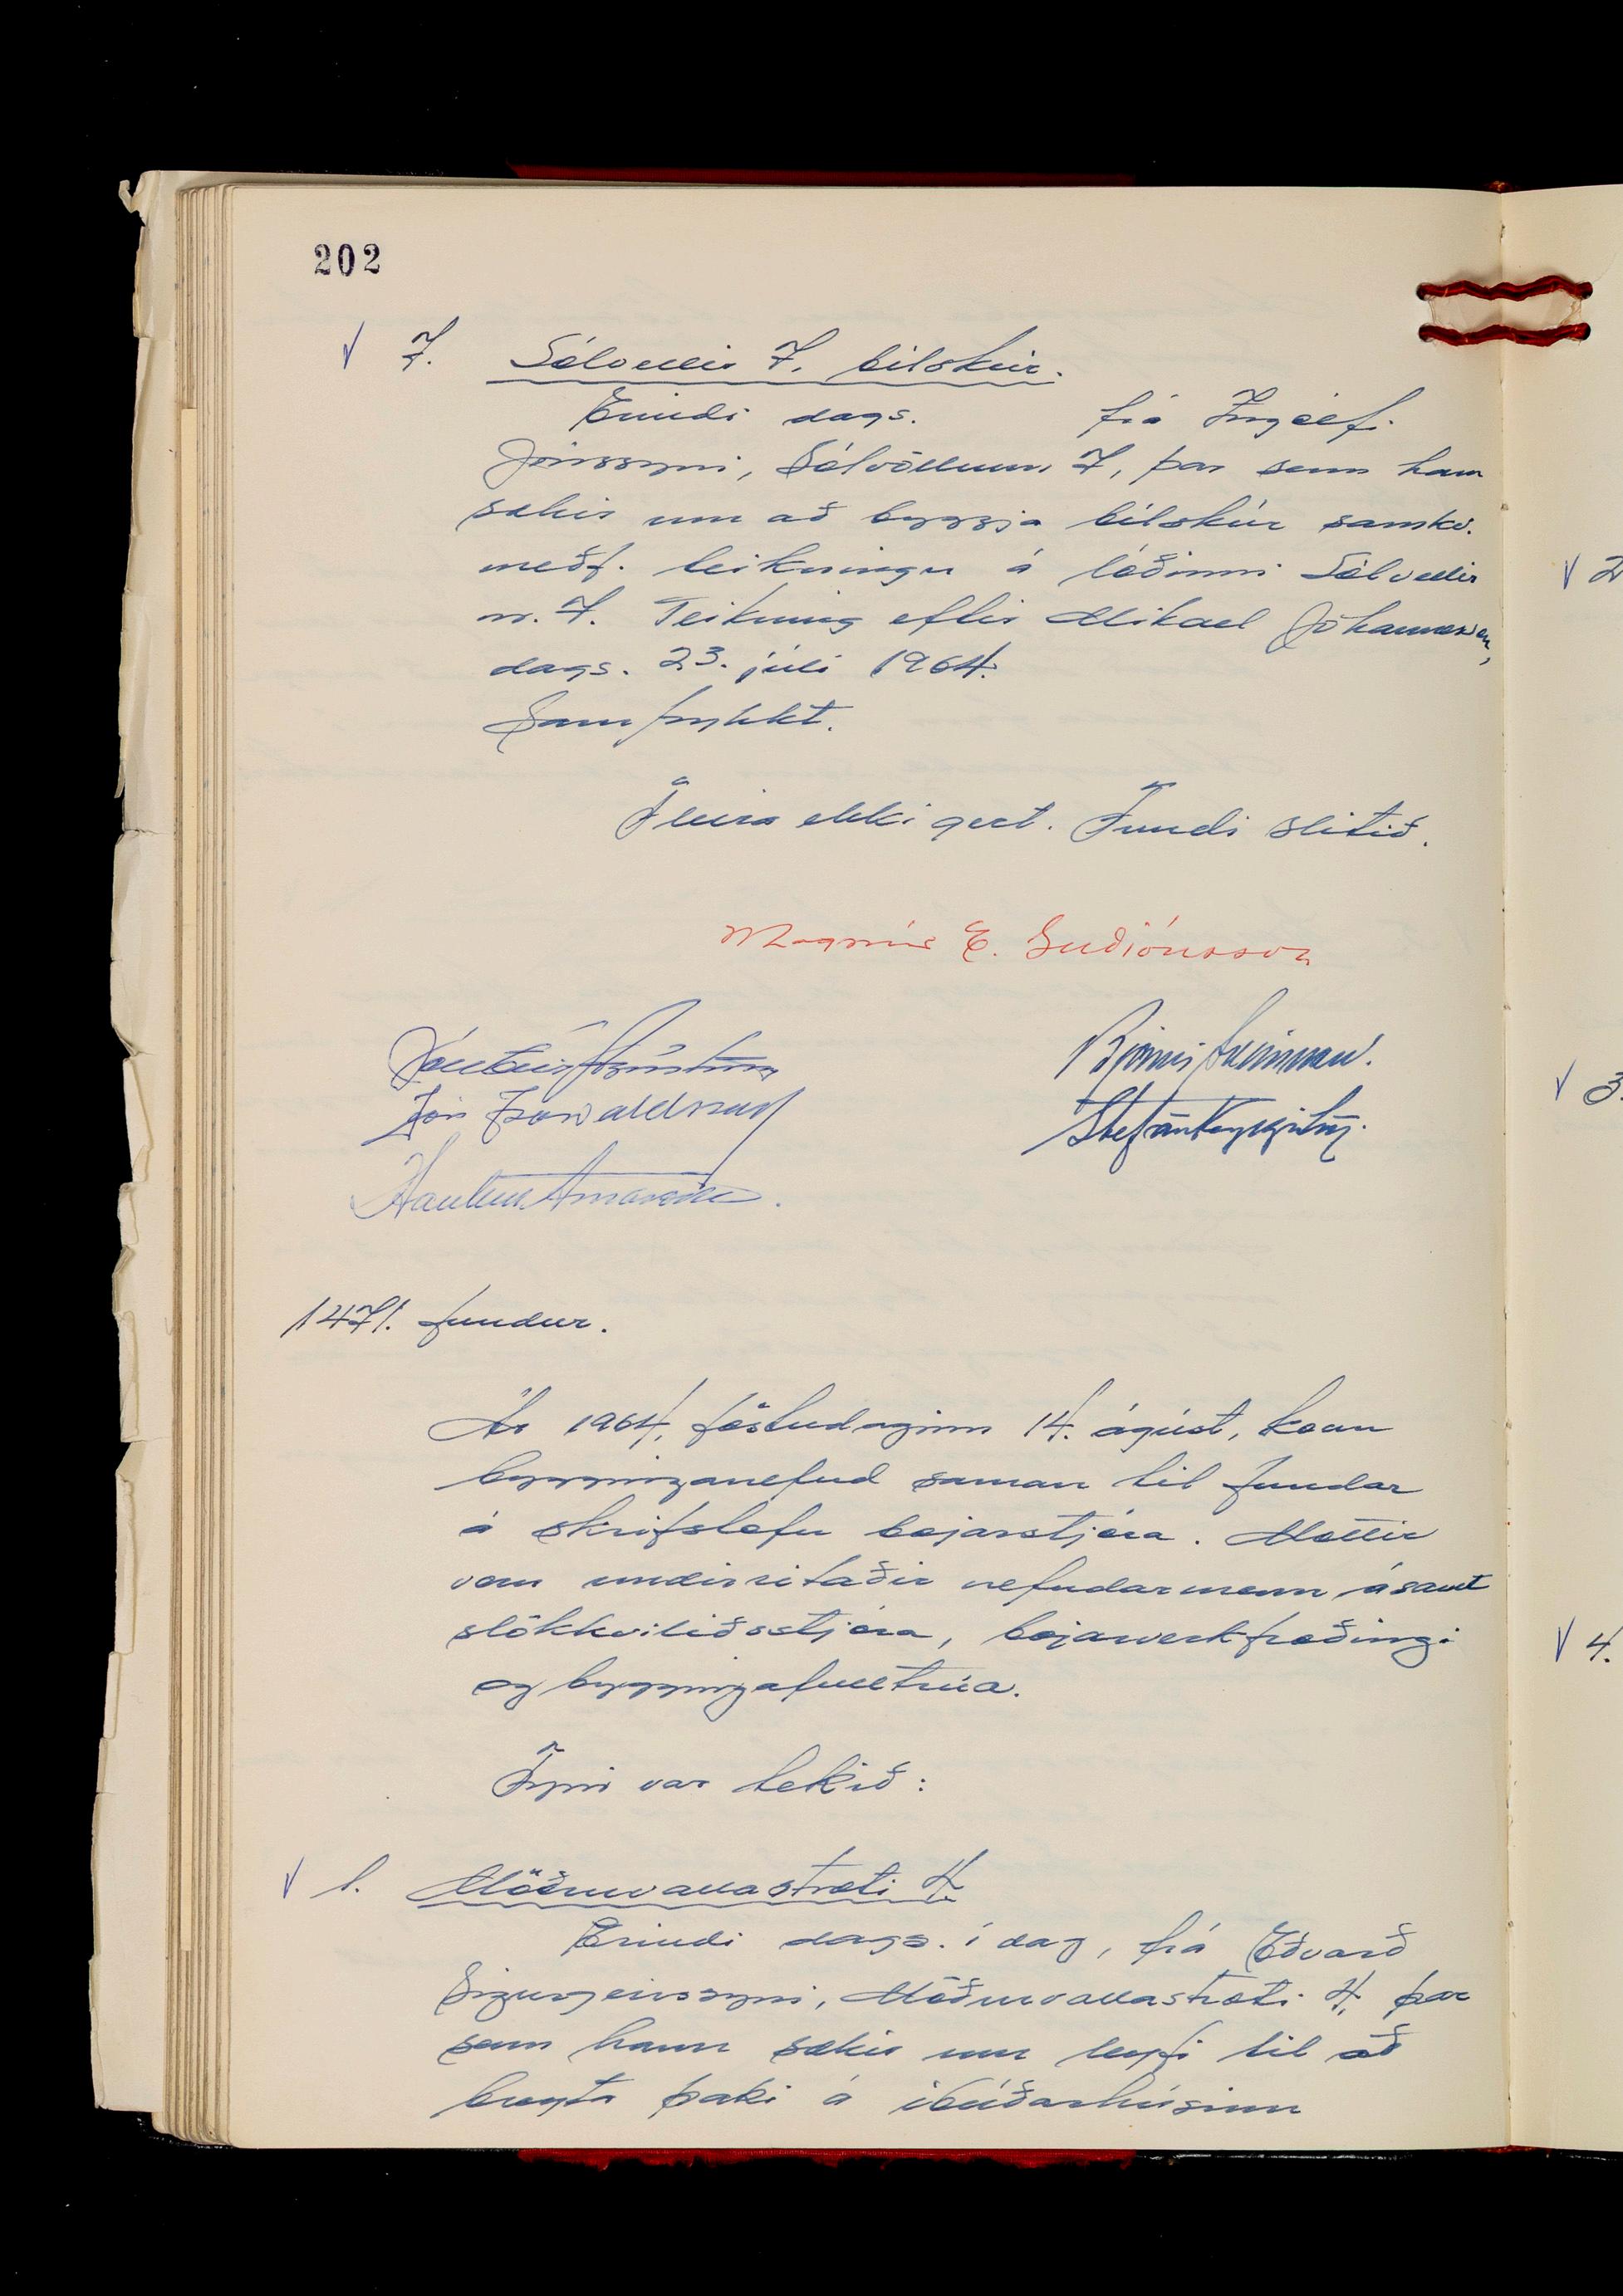 202
√ 7. Sólvellir 7, bílskúr.
Erindi dags. frá Ingólfi
Jónssyni, Sólvöllum 7, þar sem hann
sækir um að byggja bílskúr samkv.
meðf. teikningu á lóðinni Sólvellir
nr. 7. Teikning eftir Mikael Jóhannsson,
dags. 23. júlí 1964.
Samþykkt.
Fleira ekki gert. Fundi slitið.
Magnús E. Guðjónsson
Bjarni Sveinsson.
Jón Þorvaldsson
Stefán Reykjalín.
Haukur Árnason.
1471. fundur.
Ár 1964, föstudaginn 14. ágúst, kom
bygginganefnd saman til fundar
á skrifstofu bæjarstjóra. Mættir
voru undirritaðir nefndarmenn ásamt
slökkviliðsstjóra, bæjarverkfræðingi
og byggingafulltrúa.
Fyrir var tekið:
√ 1. Möðruvallastræti 4.
Erindi dags. í dag, frá Eðvarð
Sigurgeirssyni, Möðruvallastræti 4, þar
sem hann sækir um leyfi til að
breyta þaki á íbúðarhúsinu
√ 2
√ 3.
√ 4.